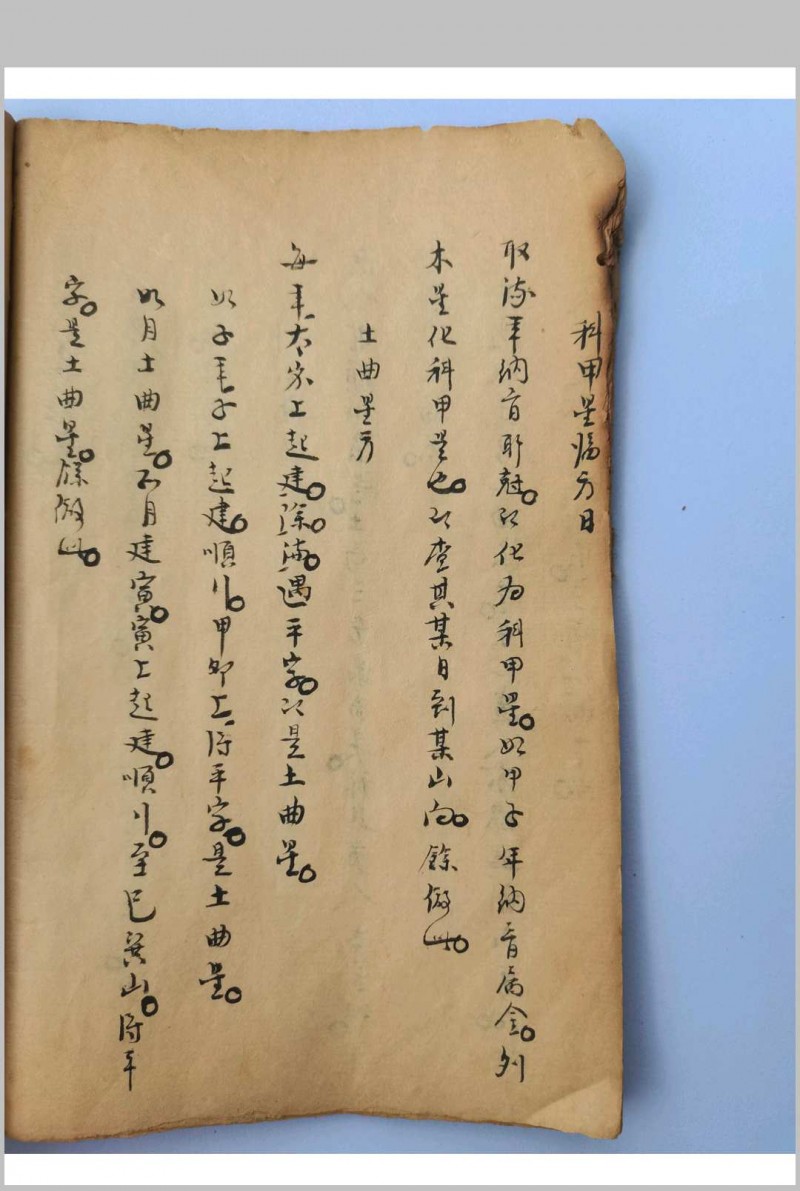 科甲星臨方日
取流年納音所尅。以化為科甲星。如甲子年納音屬金。則
木星化科甲是也。以查其某日到某山向。餘倣此。
土曲星方
每年太歲上起建。除。滿。遇平字。以是土曲星。
如子年子上起建。順行。甲卯上得平字。是土曲星。
如月土曲星。正月建寅。寅上起建。順行。至巳巽山。得平
字。是土曲星。餘倣此。